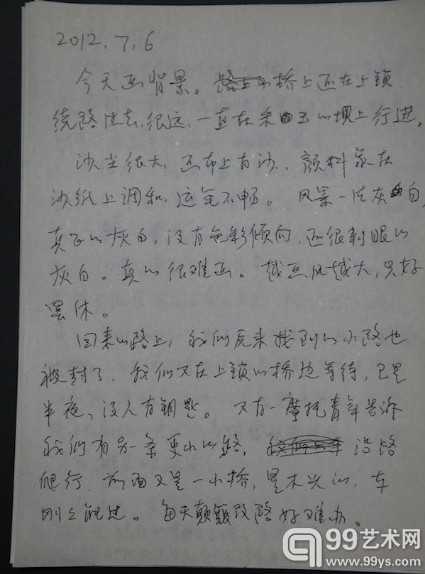 2012.7.6
今天画背景。桥上还在上锁
绕路过去,很远,一直在采玉的坝上行进。
沙尘很大,画布上有沙,颜料象在
沙纸上调和,运笔不畅。风景一片灰白,
真正的灰白,没有色彩倾向,还很刺眼的
灰白。真的很难画。越画风越大,只好
罢休。
回来的路上,我们原来找到的小路也
被封了,我们又在上锁的桥边等待,已是
半夜,没人有钥匙。又有一摩托青年告诉
我们有另一条更小的路,沿路
爬行,前面又是一小桥,是木头的,车
刚刚能过。每天颠簸改路好难办。
99艺术网
www.99ys.com